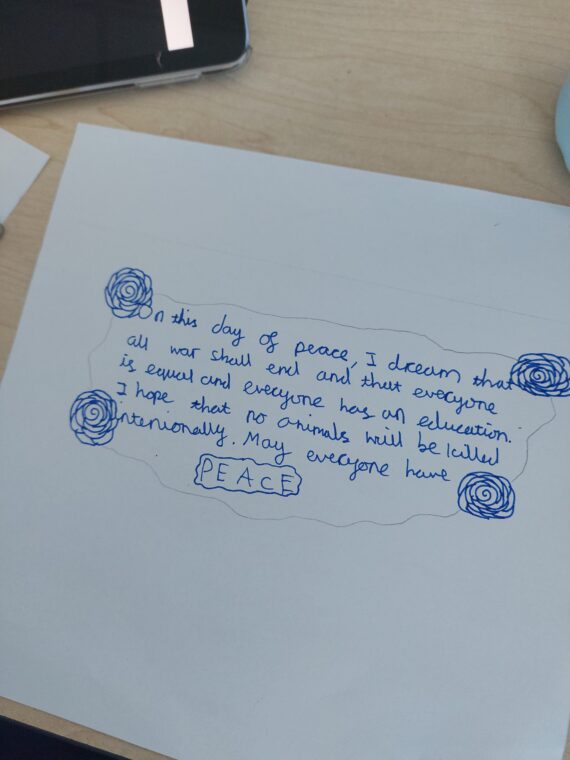 On this day of peace, I dream that
all war shall end and that everyone
is equal and everyone has an education.
I hope that no animals will be killed
intenionally. May everyone have
PEACE